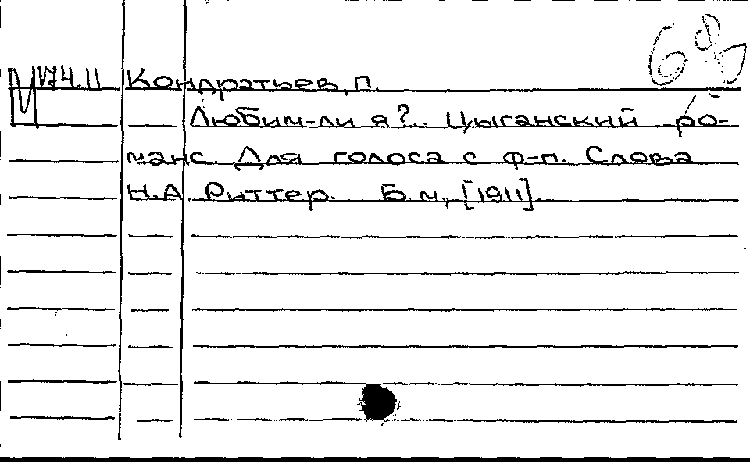 68
М 174.11 Кондратьев, П.
Любим-ли я?.. Цыганский ро-
манс. Для голоса с ф-п. Слова
Н.А. Риттер. Б.м., [1911].